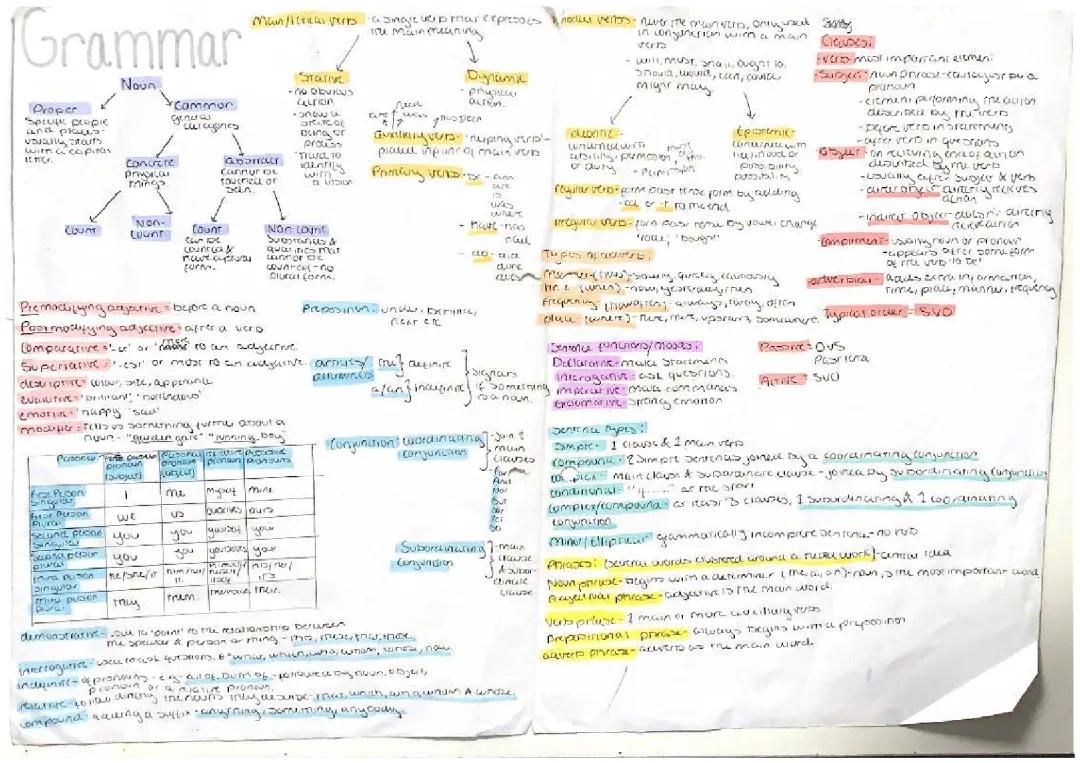 Grammar
Noun
Proper
Specific people
and places-
usually starts
with a capital
letter.
Common
general
categories
Concrete
physical
things
abstract
cannot be
touched or
seen.
Count
Non-
count
Count
can be
counted &
have a plural
form.
Non count
Substances &
qualities that
cannot be
counted - no
plural form.
Main/lexical verb - a single verb that expresses
the main meaning
Stative
- no obvious
action
- show a
state of
being or
process
Dynamic
- physical
action.
auxiliary verb - 'helping verb' -
placed infront of main verb
Primary verb - be - am
are
is
was
were
- have - has
had
- do - did
does
Premodifying adjective = before a noun
Postmodifying adjective = after a verb
Comparative = '-er' or 'more' to an adjective
Superlative = '-est' or most to an adjective.
descriptive = colour, size, appearance
evaluative = 'brilliant',
emotive = 'happy' 'sad'
modifier = tells us something further about a
noun - "garden gate" "running boy"
Preposition: under, behind,
near etc
the } definite
a/an } indefinite
signals
if something
is a noun.
Conjunction: Coordinating
conjunction
- join 2
main
clauses
For
And
Nor
But
Or
Yet
So
Subordinating
conjunction
- main
clause
& subor-
dinate
clause
Personal pronoun (subject)
Personal pronoun (object)
Possessive pronouns
First Person Singular I me myself mine
First Person Plural we us ourselves ours
Second person singular you you yourself your
Second person plural you you yourselves your
Third person singular he/she/it
Third person plural they them. their.
demonstrative - use to 'point' to the relationship between
the speaker & person or thing - this, these, that, those.
interrogative - used to ask questions. what, which, who, whom, whose, how.
indefinite - of pronouns - e.g. all of, both of - followed by noun, object,
pronoun or a relative pronoun.
relative - follow directly the nouns they describe - that, which, who, whom & whose.
compound - adding a suffix - anything, something, anybody.
modal verbs - never the main verb, only used
in conjunction with a main
verb
- will, must, shall, ought to,
should, would, can, could,
might may.
deontic
concerned with
ability, permission
or duty
epistemic
concerned with
likelihood or
possibility.
regular verb - form past tense form by adding
-ed or -t to the end
irregular verb - form past tense by vowel change
'rode', 'bought'
Types of adverb:
Manner (how) - slowly, quickly, cautiously
Time (when) - now, yesterday, then
Frequency (how often) - always, rarely, often
place (where) - here, there, upstairs, somewhere.
Sentence functions/moods:
Declarative - make statements
Interrogative - ask questions.
imperative - make commands
Exclamative - strong emotion
Passive = OVS
Active = SVO
Sentence types:
Simple - 1 clause & 1 main verb
compound - 2 simple sentences joined by a coordinating conjunction
complex - main clause & subordinate clause - joined by subordinating conjunction
conditional - "if......" at the start
complex/compound - at least 3 clauses, 1 subordinating & 1 coordinating
conjunction
Minor/elliptical - grammatically incomplete sentence - no verb
Phrases: (several words clustered around a head word) - central idea
Noun phrase - begins with a determiner (the, a, an) - noun is the most important word
Adjectival phrase - adjective is the main word.
Verb phrase - 1 main or more auxiliary verbs
Prepositional phrase - always begins with a preposition
adverb phrase - adverb as the main word.
Clauses:
verb - most important element
Subject - noun phrase - can also be a
pronoun
- element performing the action
described by the verb
- before verb in statements
- after verb in questions
Object - on receiving end of action
described by the verb
- usually after subject & verb
- direct object - directly receives
action
- indirect object - doesn't directly
receive action
Compliment - usually noun or pronoun
- appears after some form
of the verb 'to be'
adverbial - adds extra information,
time, place, manner, frequency
Typical order = SVO